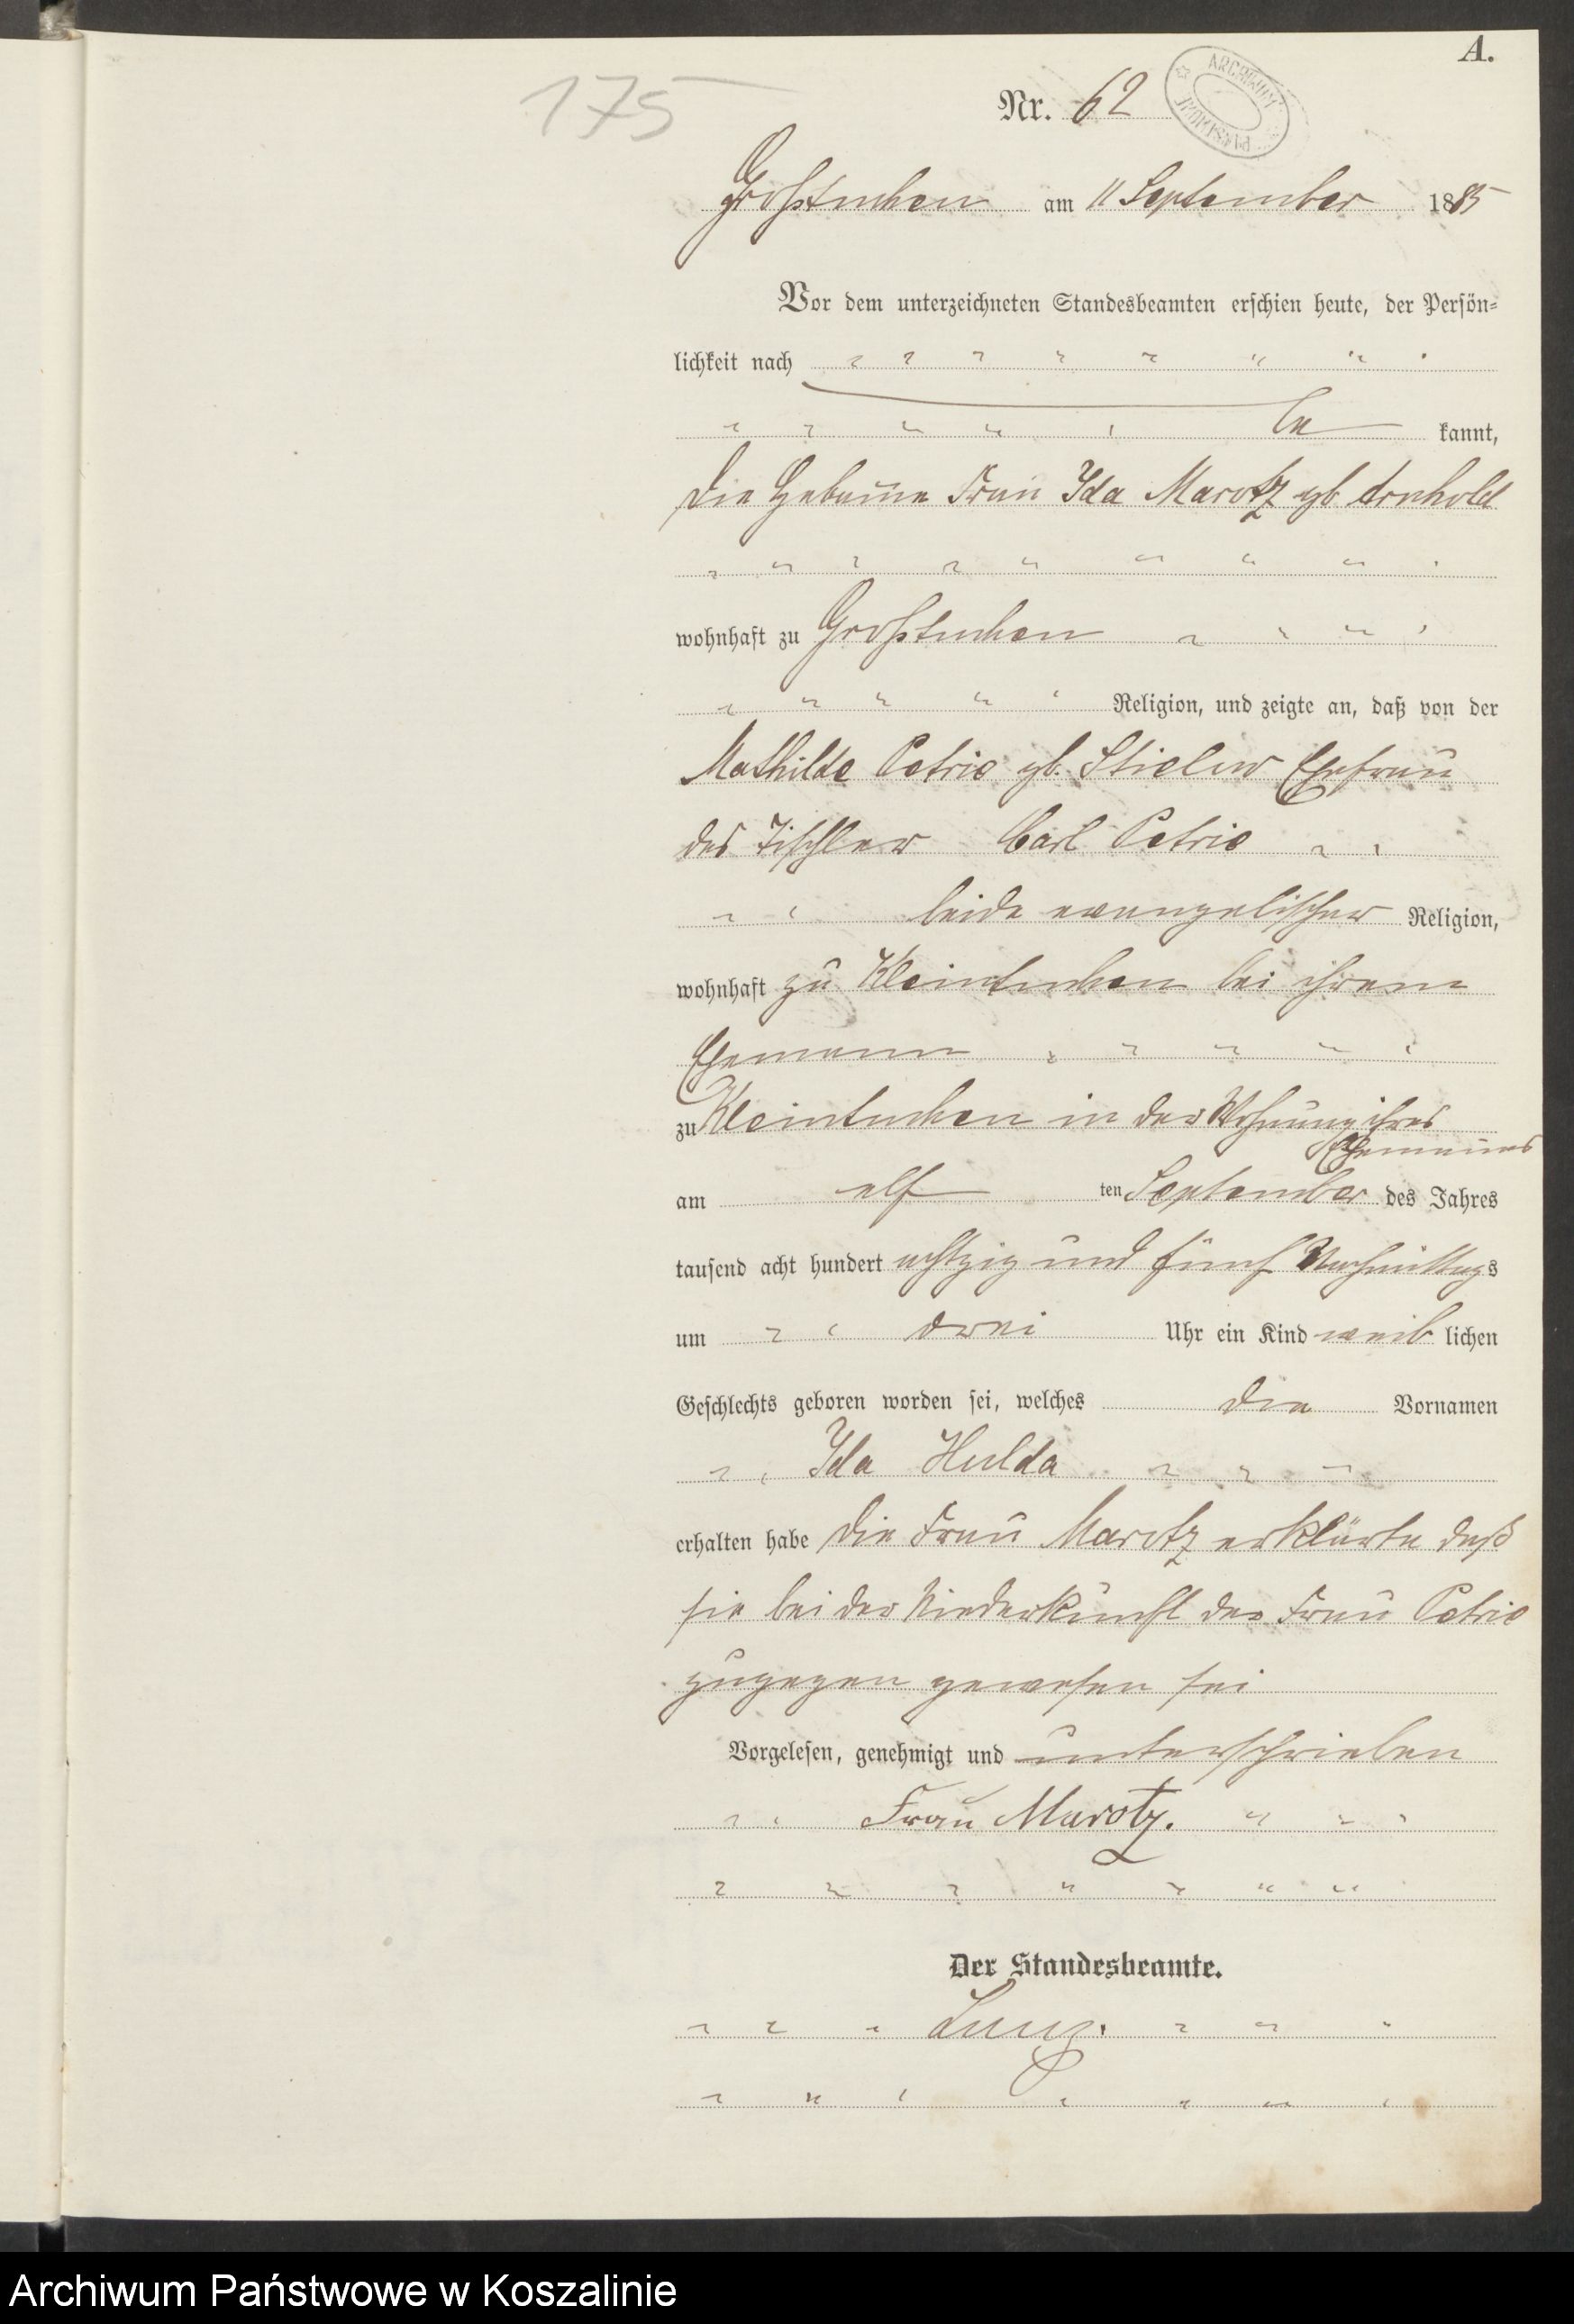 A.
175
Nr. 62
ARCHIWUM
Großtuchen am 11 September 1885
Vor dem unterzeichneten Standesbeamten erschien heute, der Persön-
lichkeit nach
be kannt,
die Hebamme Frau Ida Marotz gb. Arnhold
wohnhaft zu Großtuchen
Religion, und zeigte an, daß von der
Mathilde Petrie gb. Stielow Ehefrau
des Tischler Carl Petrie
beide evangelischer Religion,
wohnhaft zu Kleintuchen bei ihrem
Ehemann
zu Kleintuchen in der Wohnung ihres
Ehemannes
am elf ten September des Jahres
tausend acht hundert achtzig und fünf Nachmittags
um drei Uhr ein Kind weib lichen
Geschlechts geboren worden sei, welches die Vornamen
Ida Hulda
erhalten habe die Frau Marotz erklärte daß
sie bei der Niederkunft der Frau Petrie
zugegen gewesen sei
Vorgelesen, genehmigt und unterschrieben
Frau Marotz.
Der Standesbeamte.
Archiwum Państwowe w Koszalinie